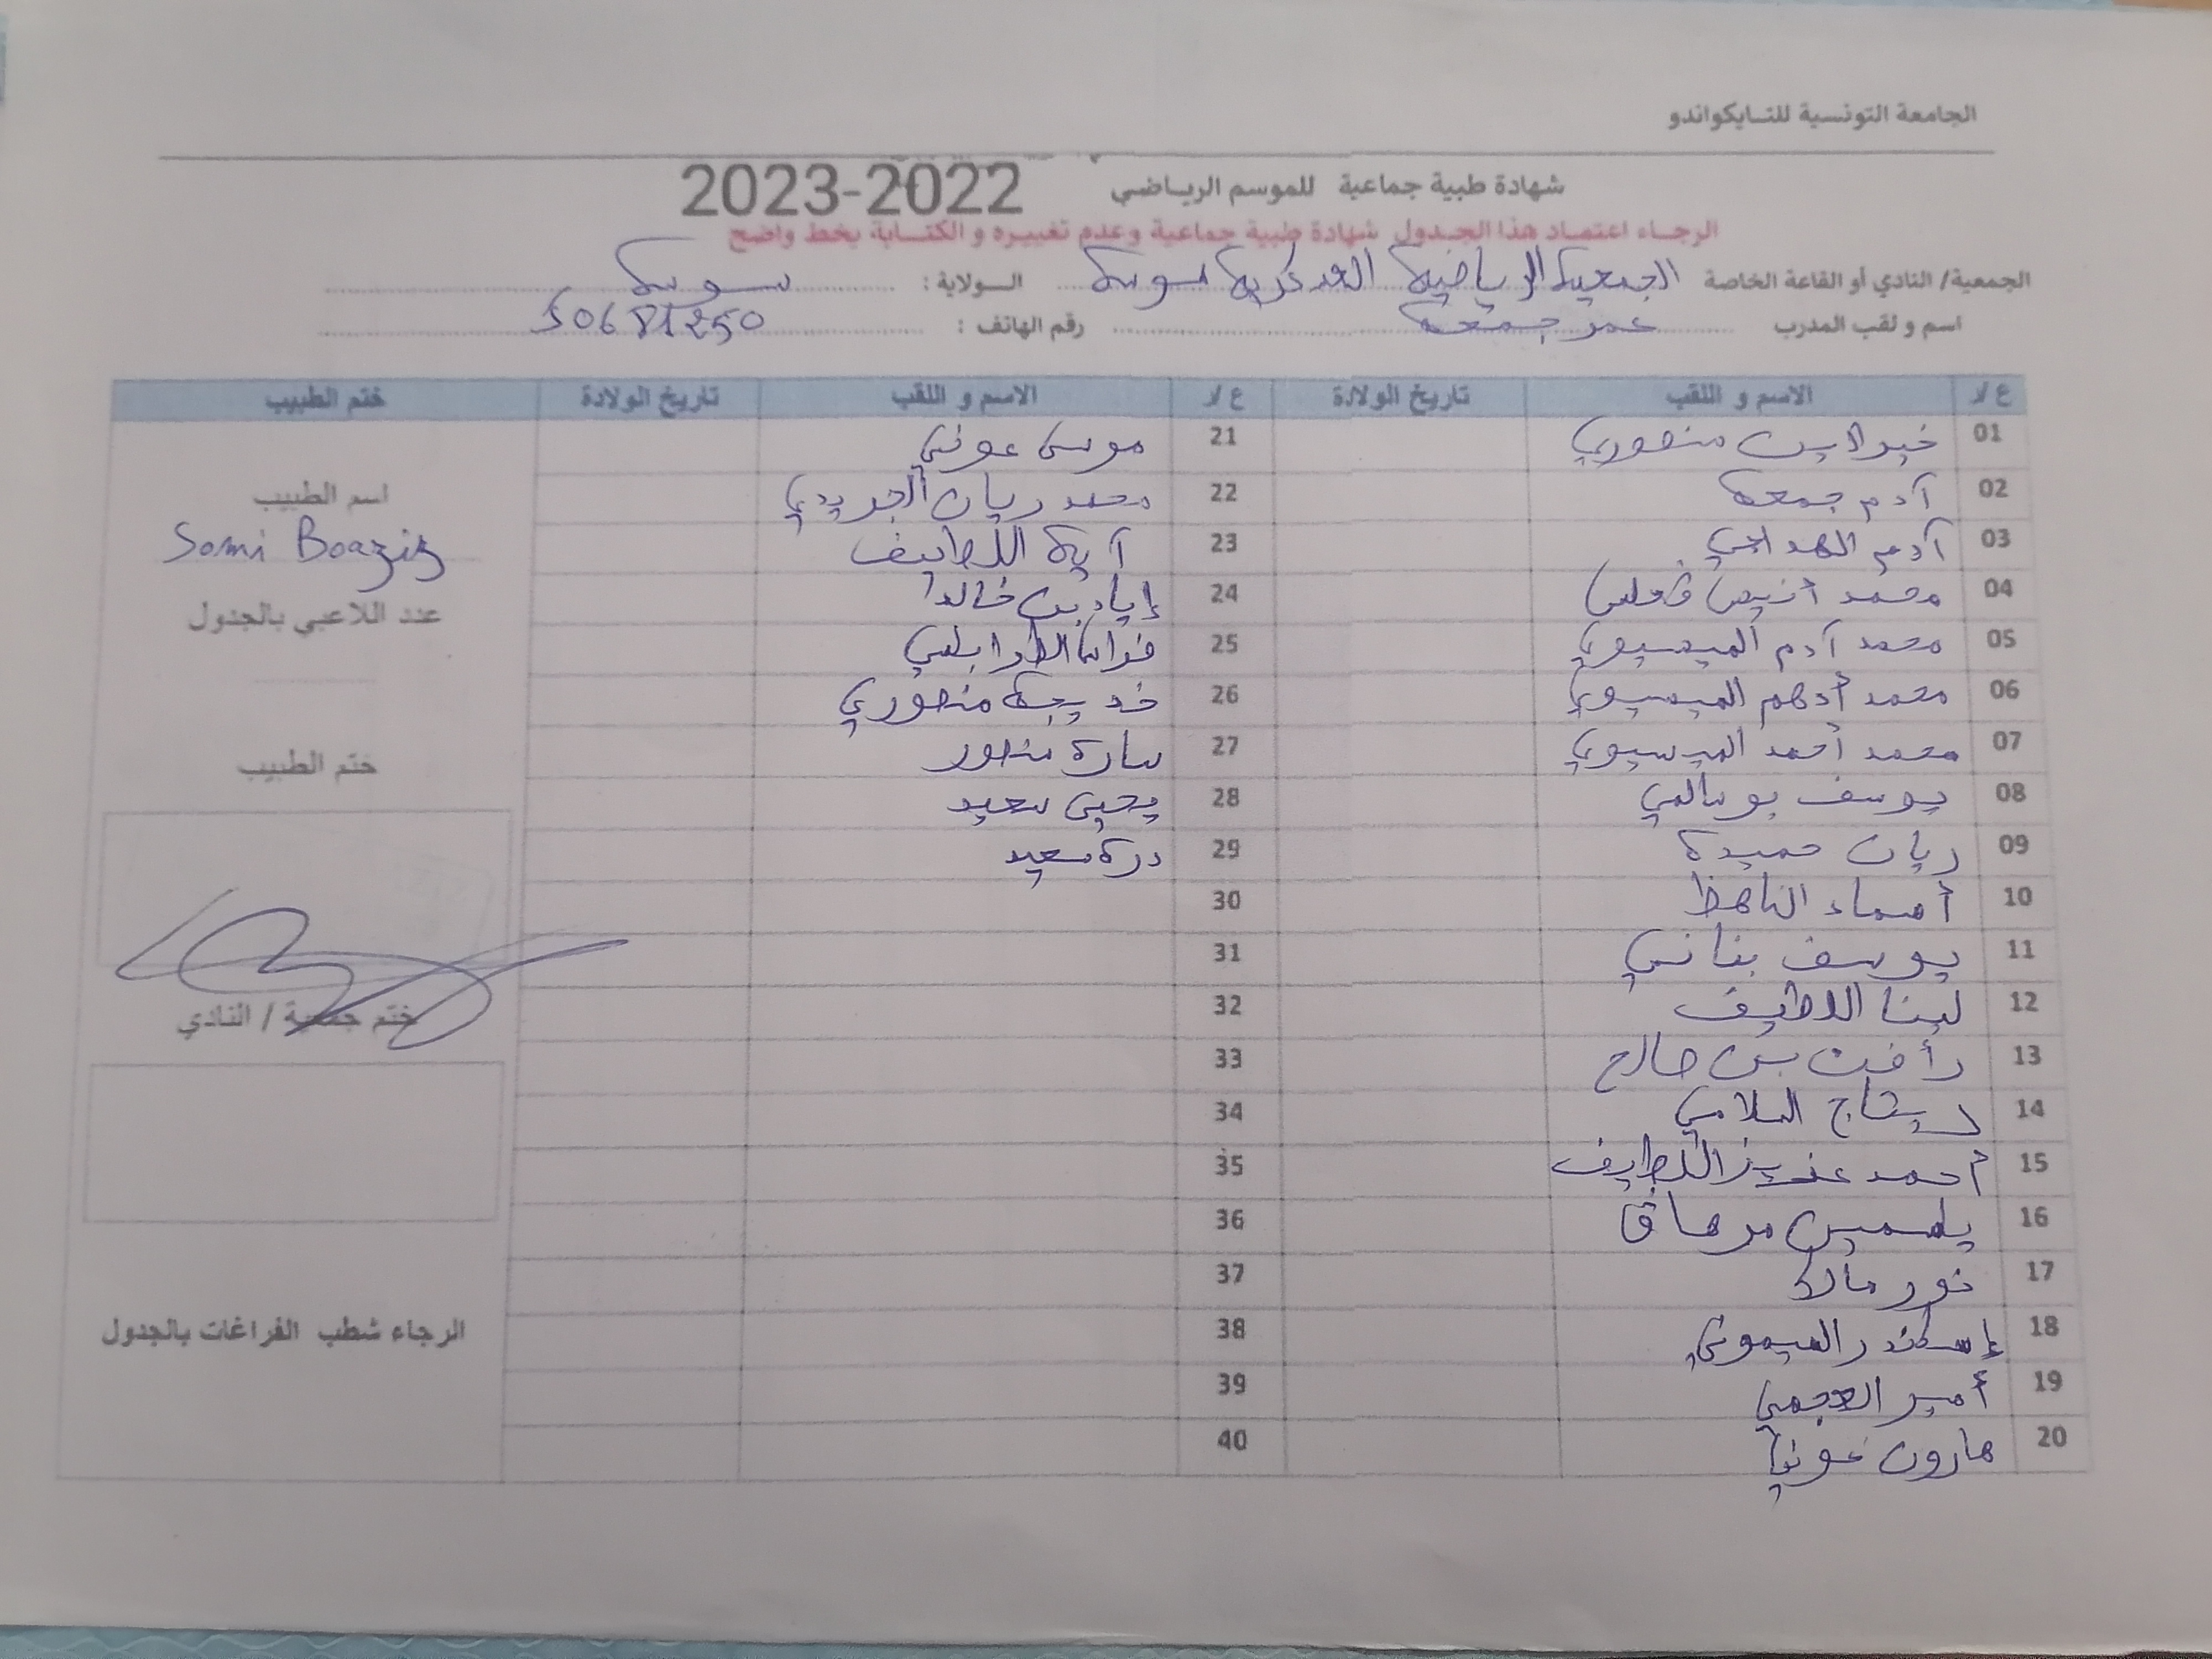 الجامعة التونسية للتـايكواندو
شهادة طبية جماعية للموسم الريـاضي 2023-2022
الرجـاء اعتمـاد هذا الجـدول شهادة طبية جماعية وعدم تغييـره و الكتـابة بخط واضح
الجمعية/ النادي أو القاعة الخاصة الجمعية الرياضية العسكرية بسوسة الـولاية : سوسة
اسم و لقب المدرب عمر جمعة رقم الهاتف : 50681250
ع/ر الاسم و اللقب تاريخ الولادة ع/ر الاسم و اللقب تاريخ الولادة ختم الطبيب
01 خير الدين منصوري
02 آدم جمعة
03 آدم
04 محمد أنيس
05 محمد آدم الميسيوي
06 محمد أدهم الميسيوي
07 محمد أحمد الميسيوي
08 يوسف بوسالمي
09 ريان حميدة
10 أسماء
11 يوسف بناني
12 لينا اللطيف
13 رأفت بن صالح
14 ريتاج السلامي
15 أحمد عزيز اللطيف
16 ياسمين
17 نور مالك
18 إسكندر الميموني
19 أمير العجمي
20 هارون عوني
21 موسى عوني
22 محمد ريان الجريدي
23 آية اللطيف
24 إياد بن خالد
25 فراس الطرابلسي
26 خديجة منصوري
27 سارة منصور
28 يحيى سعيد
29 درة سعيد
30
31
32
33
34
35
36
37
38
39
40
اسم الطبيب
Sami Boaziz
عند اللاعبي بالجدول
ختم الطبيب
ختم جمعية / النادي
الرجاء شطب الفراغات بالجدول